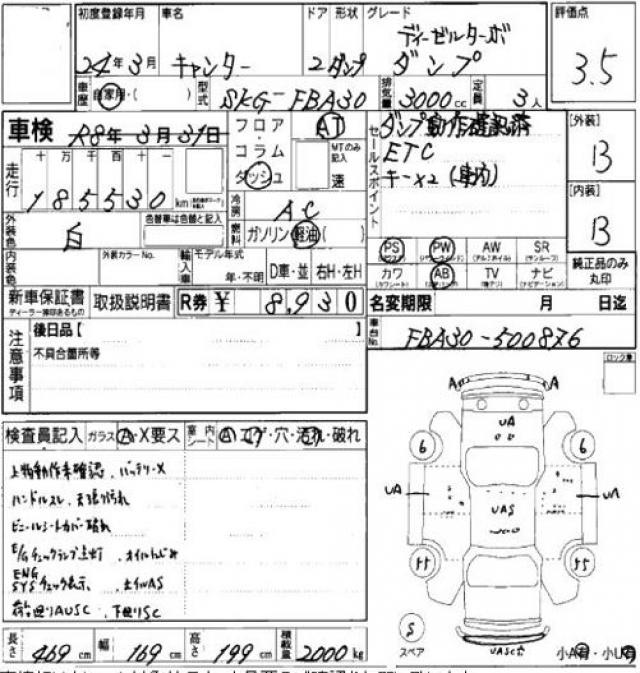 初度登録年月 車名 ドア 形状 グレード 評価点
ディーゼルターボ
24年3月 キャンター 2 ダンプ ダンプ 3.5
車歴 自家用・( ) 型式 SKG-FBA30 排気量 3000cc 定員 3人
車検 R8年3月31日 フロア・ AT セールスポイント ダンプ動作確認済 [外装]
コラム MTのみ記入 ETC B
走行 十 万 千 百 十 一 ダッシュ 速 キーx2 (車内)
185530km 冷房 AC [内装]
外装色 白 色替車は色替と記入 燃料 ガソリン・軽油( ) B
PS PW AW SR
内装色 外装カラーNo. 輸入車 モデル年式 カワ AB TV ナビ 純正品のみ丸印
年・不明 D車・並 右H・左H
新車保証書 取扱説明書 R券 ¥ 8,930 名変期限 月 日迄
ディーラー捺印あるもの
注意事項 後日品【 車台No. FBA30-500876
不具合箇所等
ロック車
A A
UA
6 6
UA UAS UA
検査員記入 ガラス A・X要ス 室内シート A コゲ・穴・汚れ・破れ
上物動作未確認、バッテリーX
ハンドルスレ、天張り汚れ
ビニールシートカバー破れ
E/Gチェックランプ点灯、オイルにじみ
ENG SYSチェック表示、
荷台廻りAUSC、下廻りSC
55 55
S
スペア 小A有・小U有
長さ 469cm 幅 169cm 高さ 199cm 積載量 2000kg